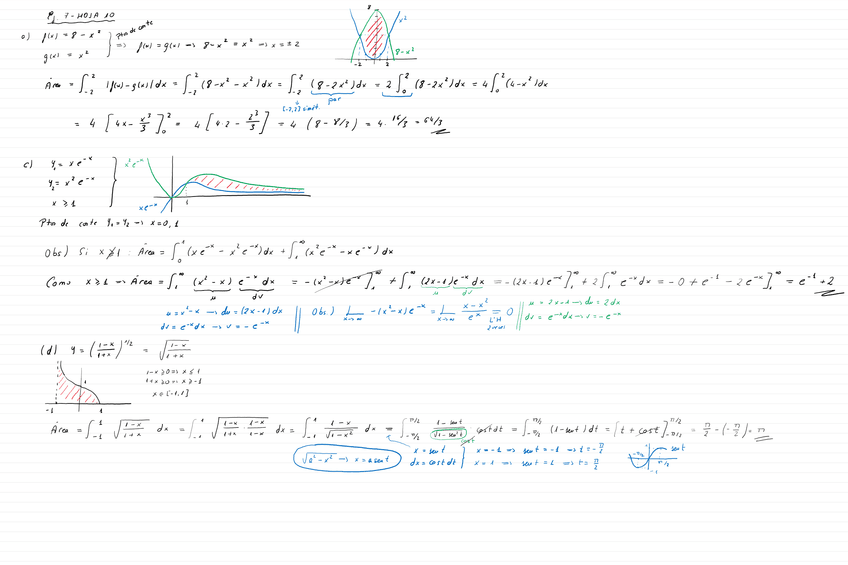 Ej 7-HOJA 10
a) f(x) = 8 - x²
g(x) = x²
} Ptos de corte ⟹ f(x) = g(x) ⟶ 8 - x² = x² ⟶ x = ±2
8
x²
8-x²
-2 2
Área = ∫_{-2}^{2} |f(x)-g(x)| dx = ∫_{-2}^{2} (8-x²-x²) dx = ∫_{-2}^{2} (8-2x²) dx = 2∫_0^2 (8-2x²) dx = 4∫_0^2 (4-x²) dx
par
= 4 [4x - x³/3]_0^2 = 4 [4·2 - 2³/3] = 4 (8 - 8/3) = 4 · 16/3 = 64/3
c) y₁ = x e^{-x}
y₂ = x² e^{-x}
x ≥ 1
x² e^{-x}
x e^{-x}
1
Ptos de corte y₁ = y₂ ⟶ x = 0, 1
Obs) Si x ≱ 1 : Área = ∫_0^1 (x e^{-x} - x² e^{-x}) dx + ∫_1^∞ (x² e^{-x} - x e^{-x}) dx
Como x ≥ 1 ⟶ Área = ∫_1^∞ (x² - x) e^{-x} dx = -(x²-x) e^{-x}]_1^∞ + ∫_1^∞ (2x-1) e^{-x} dx = -(2x-1) e^{-x}]_1^∞ + 2∫_1^∞ e^{-x} dx = -0 + e^{-1} - 2e^{-x}]_1^∞ = e^{-1} + 2
u dv u dv
u = x² - x ⟶ du = (2x-1) dx
dv = e^{-x} dx ⟶ v = -e^{-x}
Obs) lim_{x→∞} -(x²-x) e^{-x} = lim_{x→∞} (x-x²)/e^x = 0
L'H
u = 2x-1 ⟶ du = 2dx
dv = e^{-x} dx ⟶ v = -e^{-x}
(d) y = ((1-x)/(1+x))^{1/2} = √((1-x)/(1+x))
1-x ≥ 0 ⟶ x ≤ 1
1+x ≥ 0 ⟶ x ≥ -1
x ∈ [-1,1]
1
-1 1
Área = ∫_{-1}^{1} √((1-x)/(1+x)) dx = ∫_{-1}^{1} √((1-x)/(1+x) · (1-x)/(1-x)) dx = ∫_{-1}^{1} (1-x)/√(1-x²) dx = ∫_{-π/2}^{π/2} (1-sent)/√(1-sen²t) cost dt = ∫_{-π/2}^{π/2} (1-sent) dt = [t + cost]_{-π/2}^{π/2} = π/2 - (-π/2) = π
cost
√(a²-x²) ⟶ x = a sent
x = sent
dx = cost dt
x = -1 ⟹ sent = -1 ⟹ t = -π/2
x = 1 ⟹ sent = 1 ⟹ t = π/2
-π/2 π/2 sent
-1